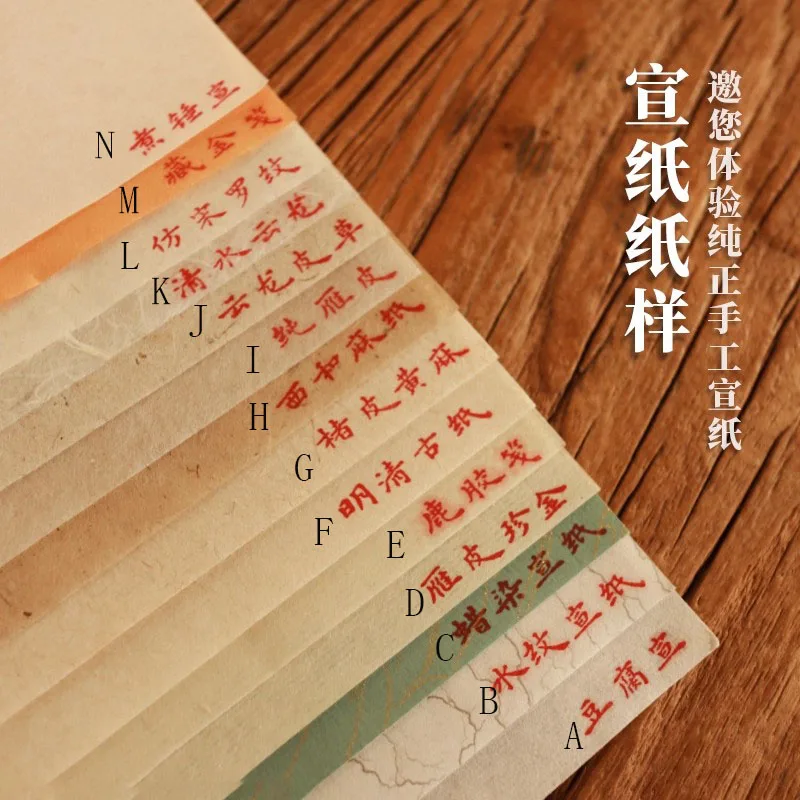 宣纸纸样
邀您体验纯正手工宣纸
N 煮锤宣
M 藏金笺
L 仿宋罗纹
K 清水云龙
J 云龙皮草
I 纯雁皮
H 西和麻纸
G 楮皮黄麻
F 明清古纸
E 鹿胶笺
D 雁皮珍金
C 蜡染宣纸
B 水纹宣纸
A 豆腐宣